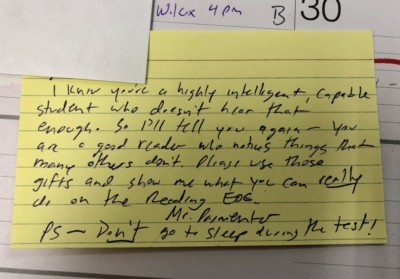 Wilcox 4pm
B
30
I know you're a highly intelligent, capable
student who doesn't hear that
enough. So I'll tell you again — you
are a good reader who notices things that
many others don't. Please use those
gifts and show me what you can really
do on the Reading EOG.
Mr. Parmenter
PS — Don't go to sleep during the test!